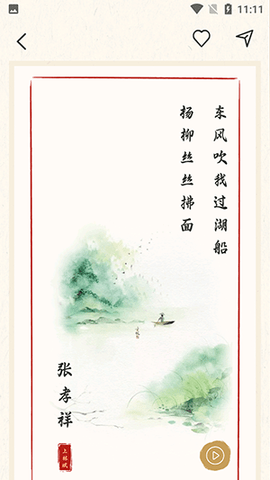 11:11
东风吹我过湖船
杨柳丝丝拂面
张孝祥
上林赋